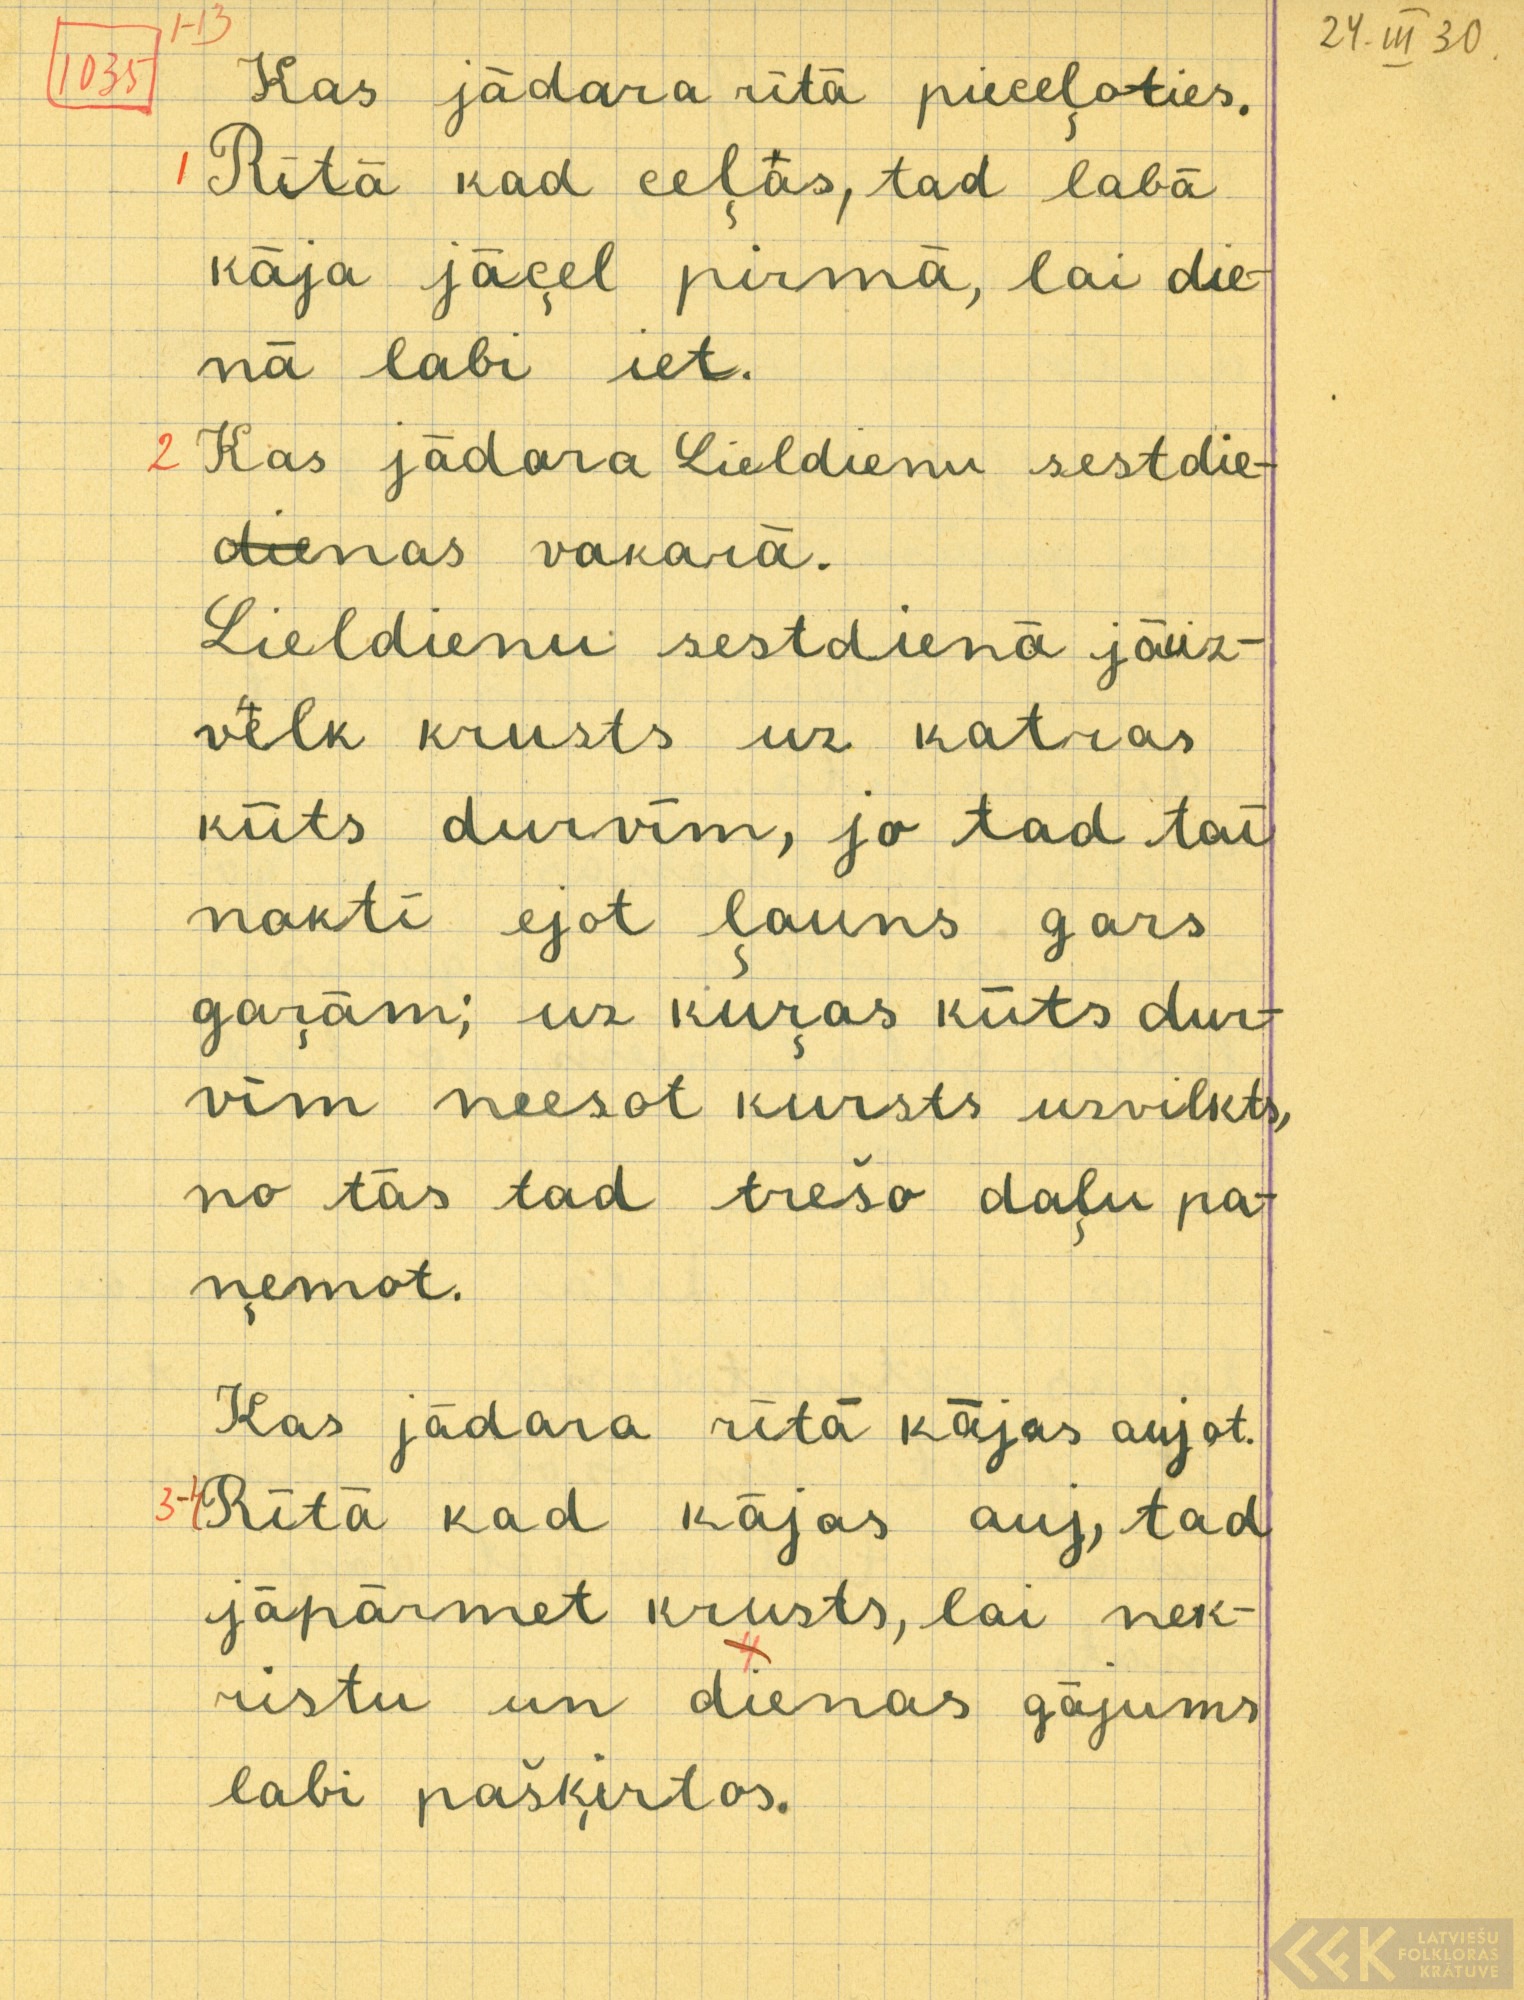 1-13
1035
24. III 30.
Kas jādara rītā pieceļoties.
1 Rītā kad ceļās, tad labā
kāja jāceļ pirmā, lai die-
nā labi iet.
2 Kas jādara Lieldienu sestdie-
dienas vakarā.
Lieldienu sestdienā jāuz-
velk krusts uz katras
kūts durvīm, jo tad tai
naktī ejot ļauns gars
gaŗām; uz kuŗas kūts dur-
vīm neesot kursts uzvilkts,
no tās tad trešo daļu pa-
ņemot.
Kas jādara rītā kājas aujot.
3-4 Rītā kad kājas auj, tad
jāpārmet krusts, lai nek-
4
ristu un dienas gājums
labi pašķirtos.
LATVIEŠU
FOLKLORAS
KRĀTUVE